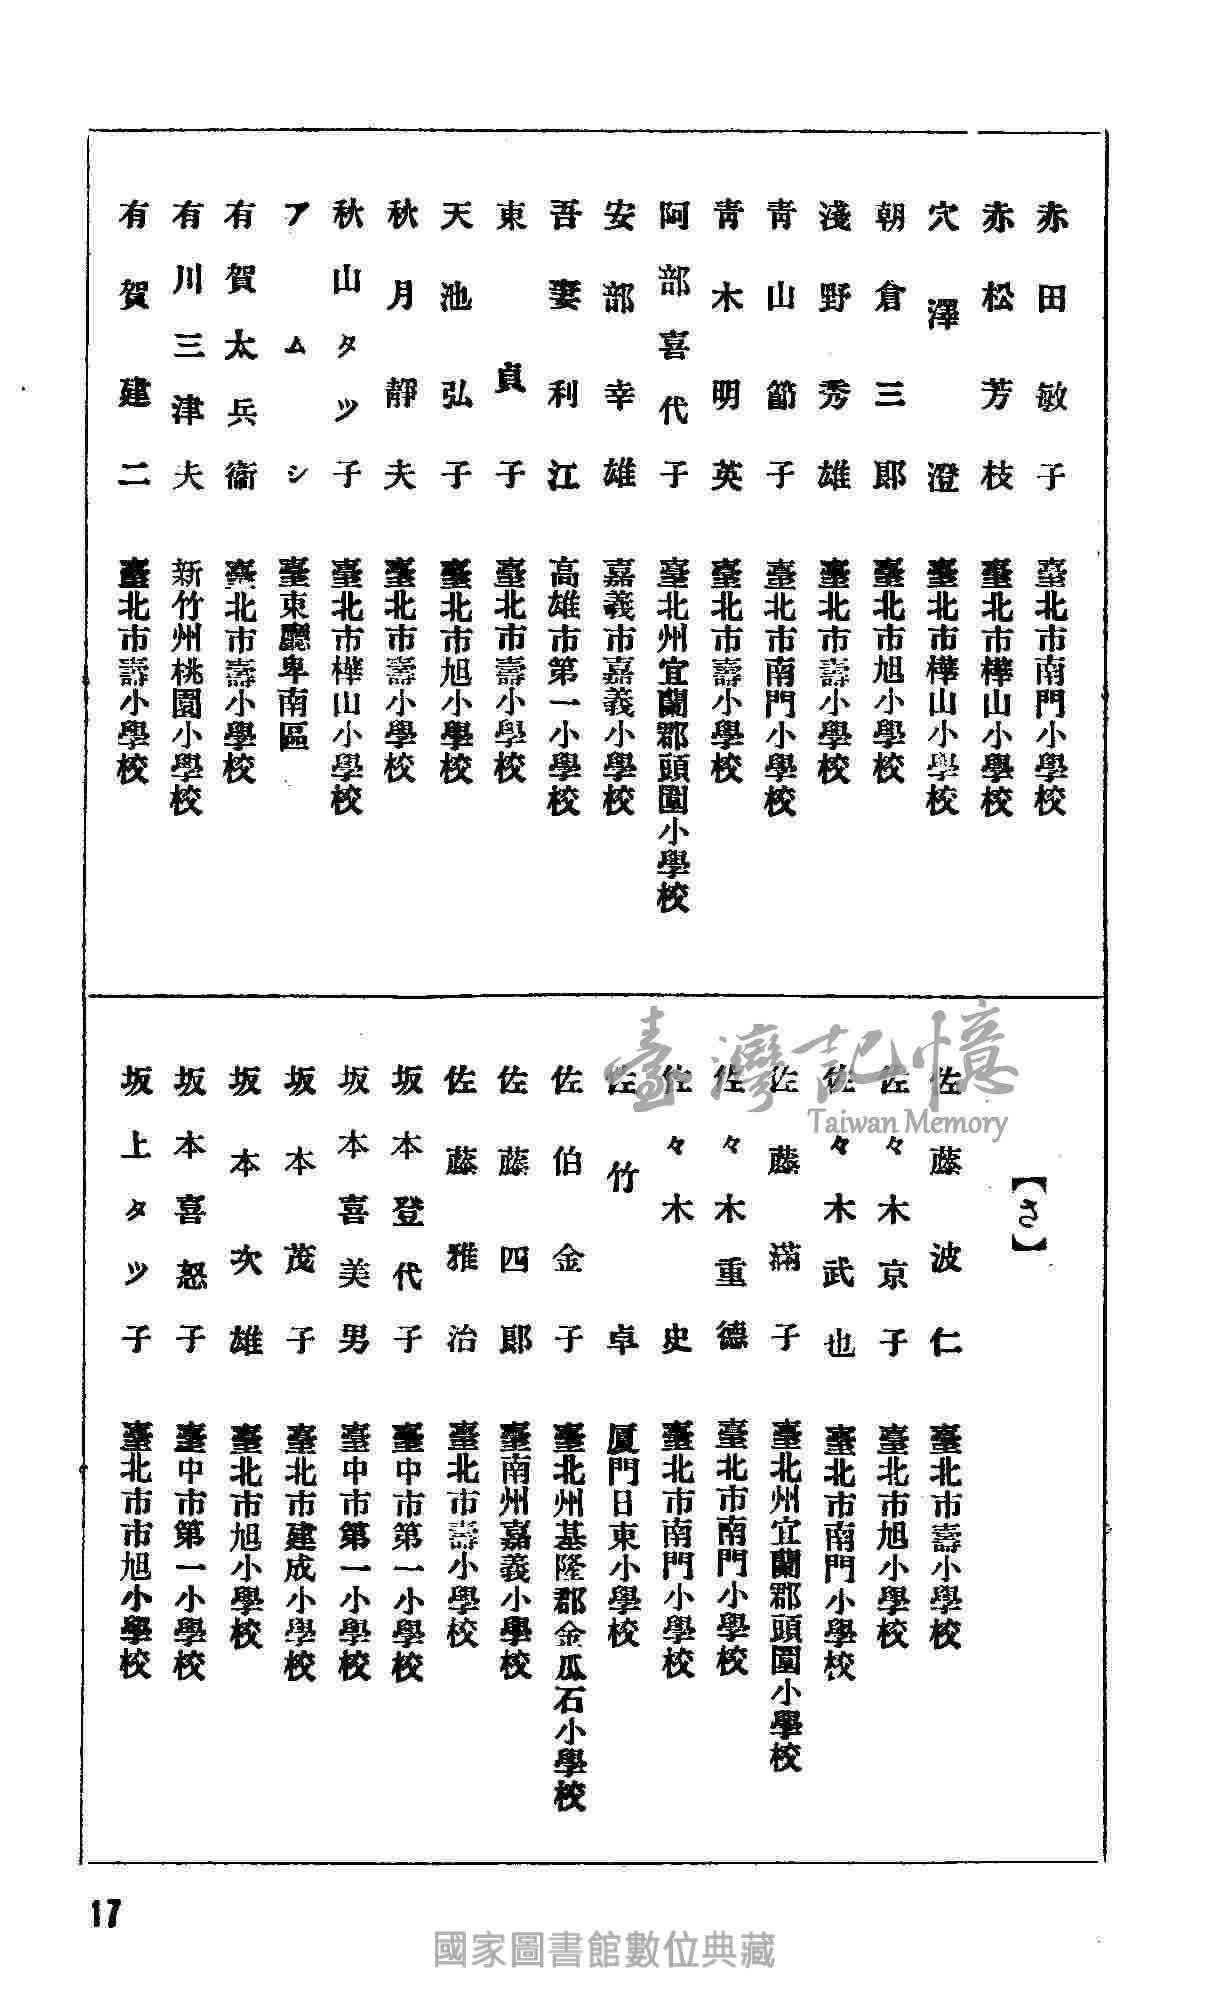 赤田敏子 臺北市南門小學校
赤松芳枝 臺北市樺山小學校
穴澤澄 臺北市樺山小學校
朝倉三郎 臺北市旭小學校
淺野秀雄 臺北市壽小學校
青山節子 臺北市南門小學校
青木明英 臺北市壽小學校
阿部喜代子 臺北州宜蘭郡頭圍小學校
安部幸雄 嘉義市嘉義小學校
吾妻利江 高雄市第一小學校
東貞子 臺北市壽小學校
天池弘子 臺北市旭小學校
秋月靜夫 臺北市壽小學校
秋山タツ子 臺北市樺山小學校
アムシ 臺東廳卑南區
有賀太兵衞 臺北市壽小學校
有川三津夫 新竹州桃園小學校
有賀建二 臺北市壽小學校
【さ】
佐藤波仁 臺北市壽小學校
佐々木京子 臺北市旭小學校
佐々木武也 臺北市南門小學校
佐藤滿子 臺北州宜蘭郡頭圍小學校
佐々木重德 臺北市南門小學校
佐々木史 臺北市南門小學校
佐竹卓 厦門日東小學校
佐伯金子 臺北州基隆郡金瓜石小學校
佐藤四郎 臺南州嘉義小學校
佐藤雅治 臺北市壽小學校
坂本登代子 臺中市第一小學校
坂本喜美男 臺中市第一小學校
坂本茂子 臺北市建成小學校
坂本次雄 臺北市旭小學校
坂本喜怒子 臺中市第一小學校
坂上タツ子 臺北市市旭小學校
17
臺灣記憶
Taiwan Memory
國家圖書館數位典藏